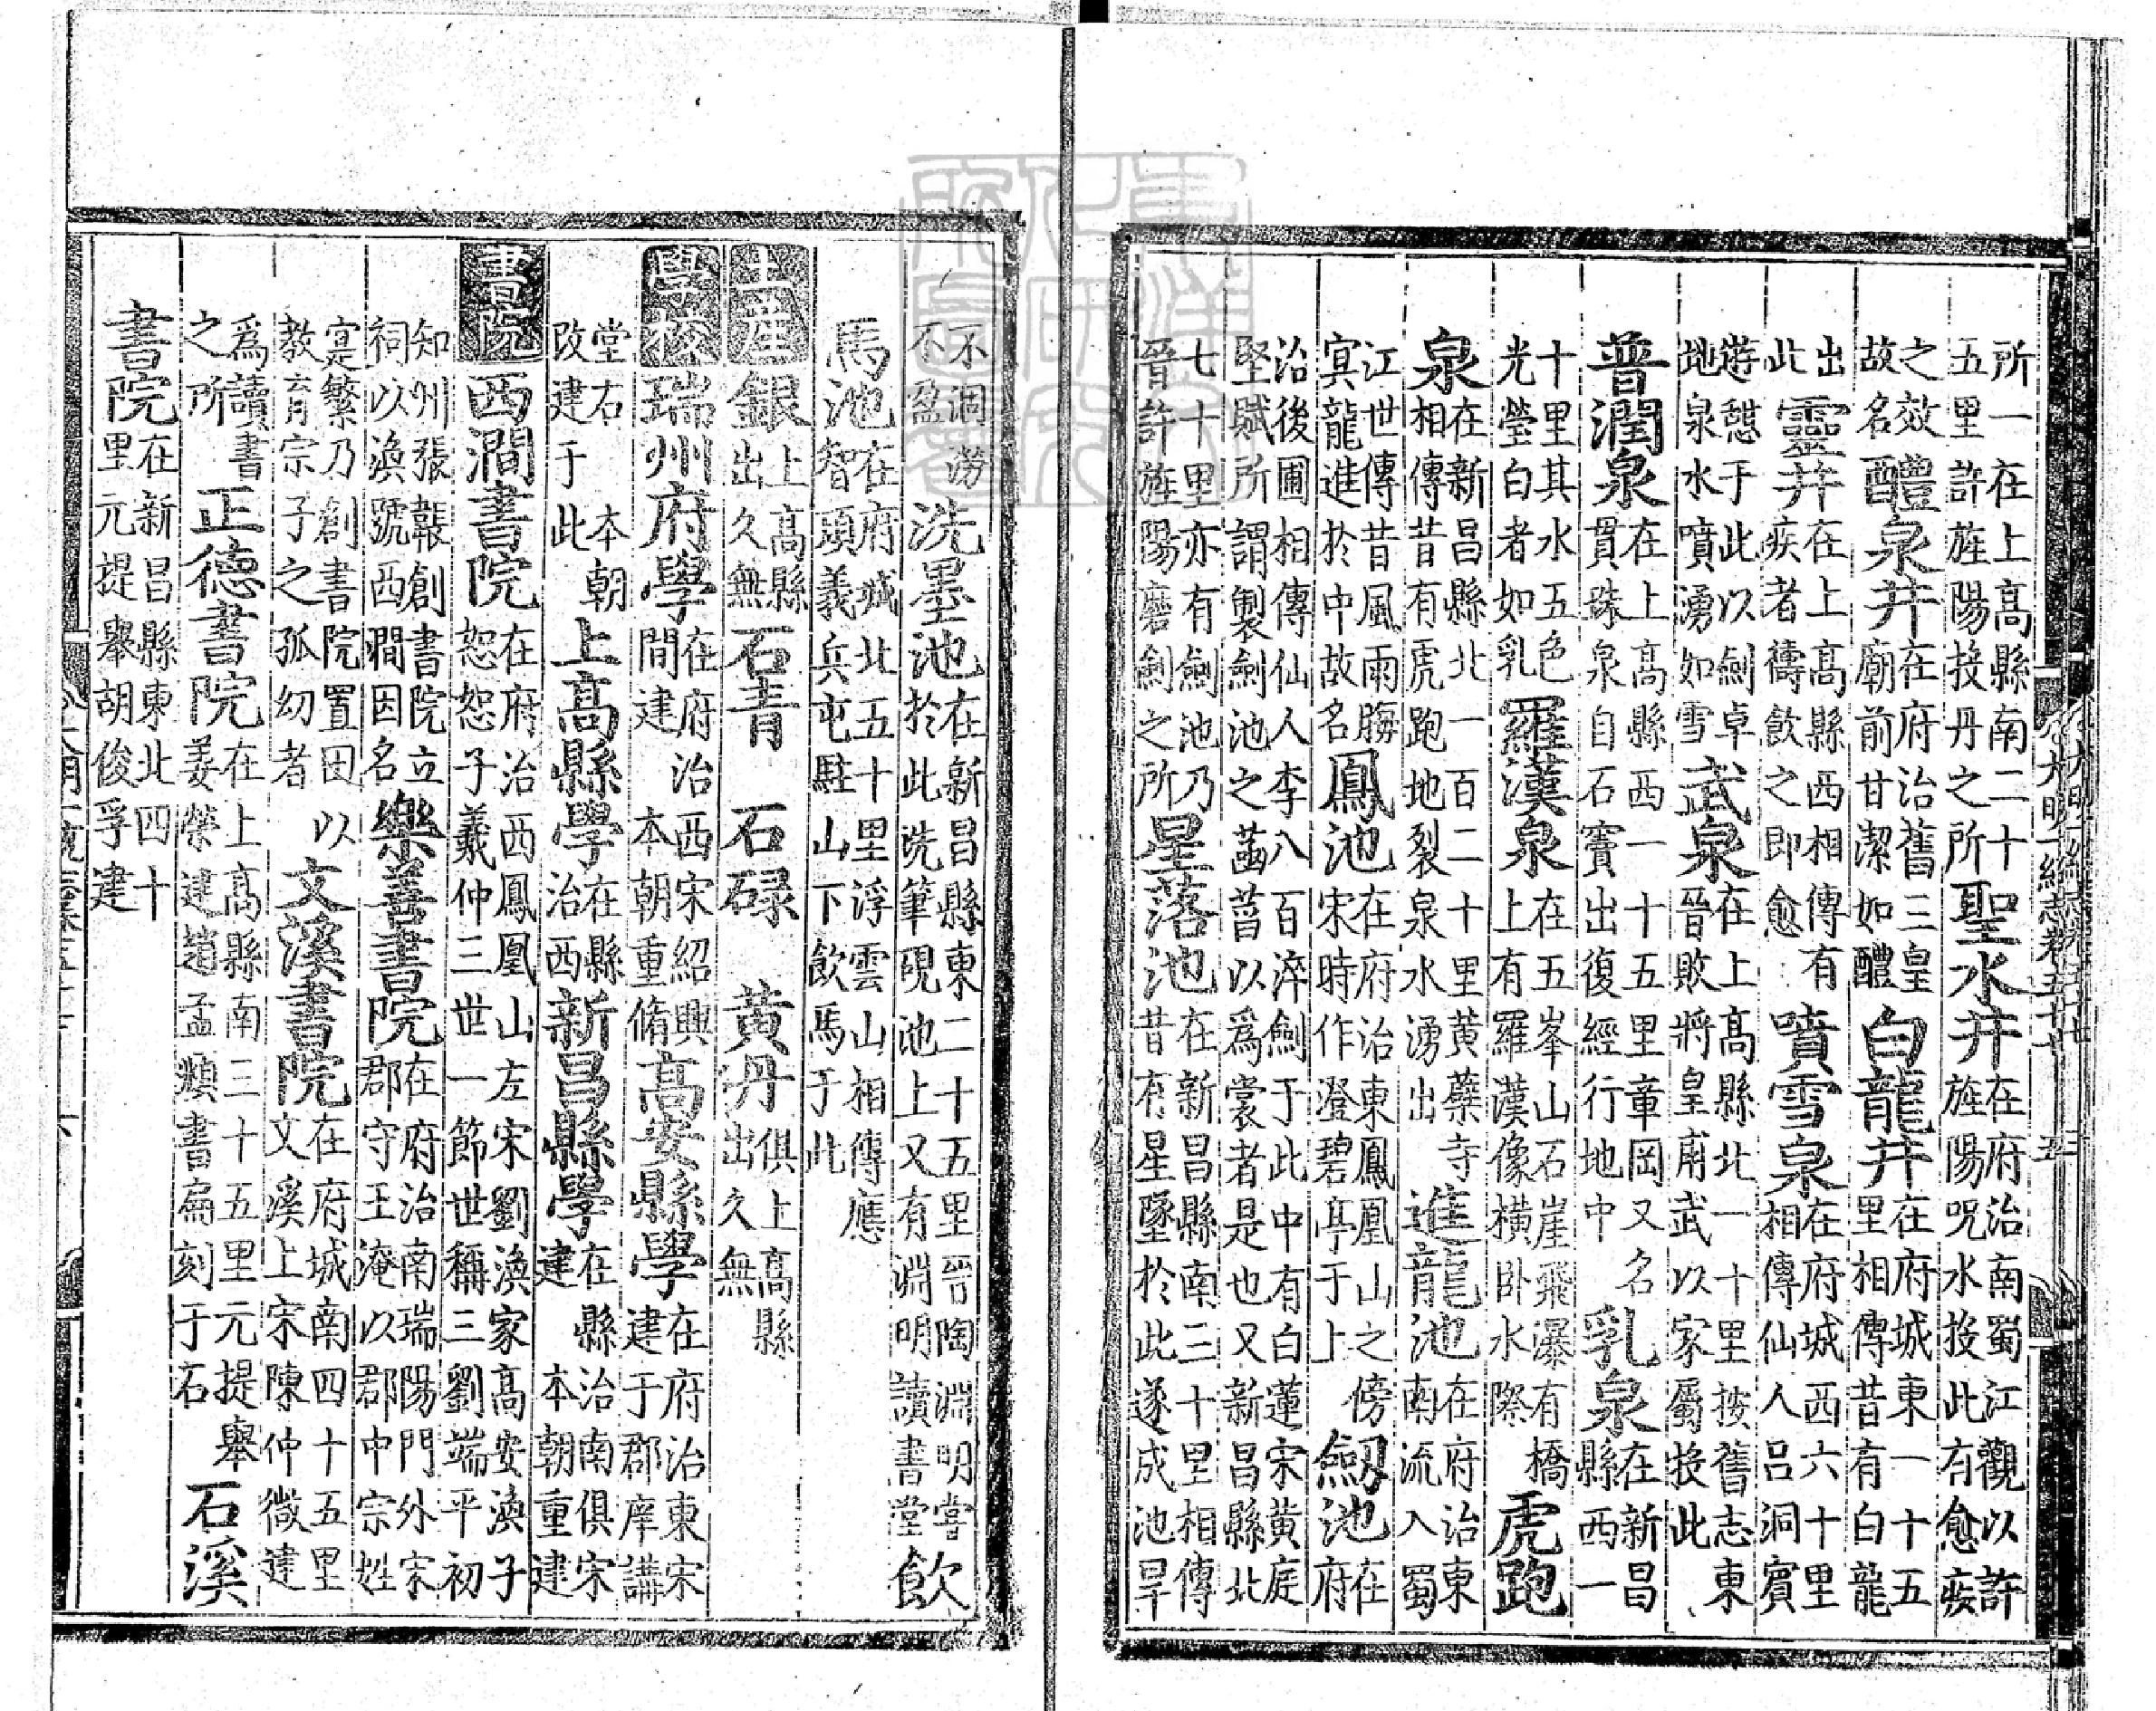 所一在上高縣南二十五里許旌陽投丹之所聖水井在府治南蜀江觀以許旌陽呪水投此有愈疾
之效故名醴泉井在府治舊三皇廟前甘潔如醴白龍井在府城東一十五里相傳昔有白龍
出此靈井在上高縣西相傳有疾者禱飲之即愈噴雪泉在府城西六十里相傳仙人呂洞賓
遊憩于此以劍卓地泉水噴湧如雪武泉在上高縣北一十里按舊志東晉敗將皇甫武以家屬投此
普潤泉在上高縣西一十五里章岡又名貫珠泉自石竇出復經行地中乳泉在新昌縣西一
十里其水五色光瑩白者如乳羅漢泉在五峯山石崖飛瀑有橋上有羅漢像橫卧水際虎跑
泉在新昌縣北一百二十里黃蘗寺相傳昔有虎跑地裂泉水湧出進龍池在府治東南流入蜀
江世傳昔風雨晦冥龍進於中故名鳳池在府治東鳳凰山之傍宋時作澄碧亭于上劒池在府
治後圃相傳仙人李八百淬劍于此中有白蓮宋黃庭堅賦所謂製劍池之菡萏以爲裳者是也又新昌縣北
七十里亦有劍池乃晉許旌陽磨劍之所星落池在新昌縣南三十里相傳昔有星墜於此遂成池旱
不涸澇不盈洗墨池在新昌縣東二十五里晉陶淵明嘗於此洗筆硯池上又有淵明讀書堂飲
馬池在府城北五十里浮雲山相傳應智頊義兵屯駐山下飲馬于此
土産銀上高縣出久無石青 石碌 黃丹俱上高縣出久無
學校瑞州府學在府治西宋紹興間建本朝重脩高安縣學在府治東宋建于郡庠講
堂右本朝改建于此上高縣學在縣治西新昌縣學在縣治南俱宋建本朝重建
書院西澗書院在府治西鳳凰山左宋劉渙家高安渙子恕恕子羲仲三世一節世稱三劉端平初
知州張韔創書院立祠以渙號西澗因名樂善書院在府治南瑞陽門外宋郡守王淹以郡中宗姓
寔繁乃創書院置田以教育宗子之孤幼者文溪書院在府城南四十五里文溪上宋陳仲微建
爲讀書之所正德書院在上高縣南三十五里元提舉姜榮建趙孟頫書扁刻于石石溪
書院在新昌縣東北四十里元提舉胡俊孚建
大明一統志卷五十七